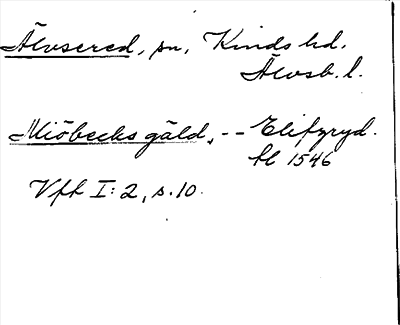 Älvsered, sn, Kinds hd.
Älvsb. l.
Miöbecks gäld, -- Elifzryd.
hl 1546
Vfh I:2, s. 10.